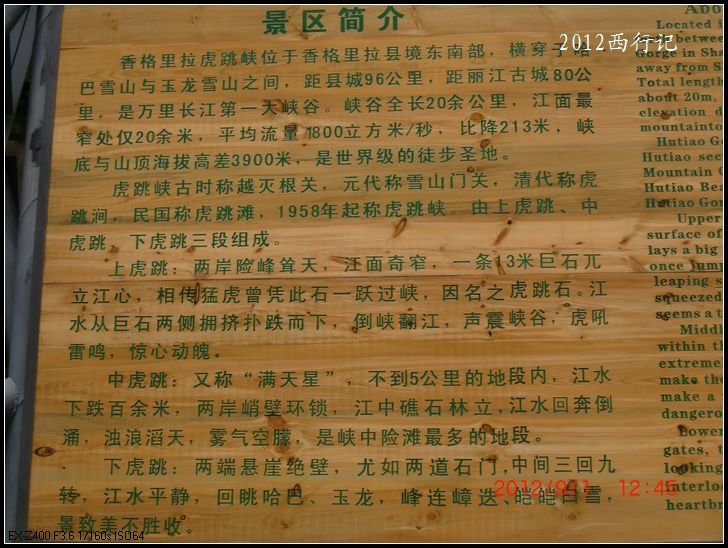 景区简介
香格里拉虎跳峡位于香格里拉县境东南部，横穿于哈
巴雪山与玉龙雪山之间，距县城96公里，距丽江古城80公
里，是万里长江第一大峡谷。峡谷全长20余公里，江面最
窄处仅20余米，平均流量1800立方米/秒，比降213米，峡
底与山顶海拔高差3900米，是世界级的徒步圣地。
虎跳峡古时称越灭根关，元代称雪山门关，清代称虎
跳涧，民国称虎跳滩，1958年起称虎跳峡。由上虎跳、中
虎跳、下虎跳三段组成。
上虎跳：两岸险峰耸天，江面奇窄，一条13米巨石兀
立江心，相传猛虎曾凭此石一跃过峡，因名之虎跳石。江
水从巨石两侧拥挤扑跌而下，倒峡翻江，声震峡谷，虎吼
雷鸣，惊心动魄。
中虎跳：又称“满天星”，不到5公里的地段内，江水
下跌百余米，两岸峭壁环锁，江中礁石林立，江水回奔倒
涌，浊浪滔天，雾气空朦，是峡中险滩最多的地段。
下虎跳：两端悬崖绝壁，尤如两道石门，中间三回九
转，江水平静，回眺哈巴、玉龙，峰连嶂迭、皑皑白雪，
景致美不胜收。
ADO
Located
and between
Gorge in Sha
away from S
Total length
about 20m,
elevation d
mountainto
Hutiao Go
Hutiao sec
Mountain
Hutiao Bea
Hutiao Gor
Upper
surface of
lays a big
once jum
leaping s
squeezed
seems a t
Middl
within th
extreme
make the
make a
dangero
Lower
gates, t
looking
interloc
heartbr
2012西行记
2012/9/1 12:45
EX-Z400 F3.6 1/160s ISO64